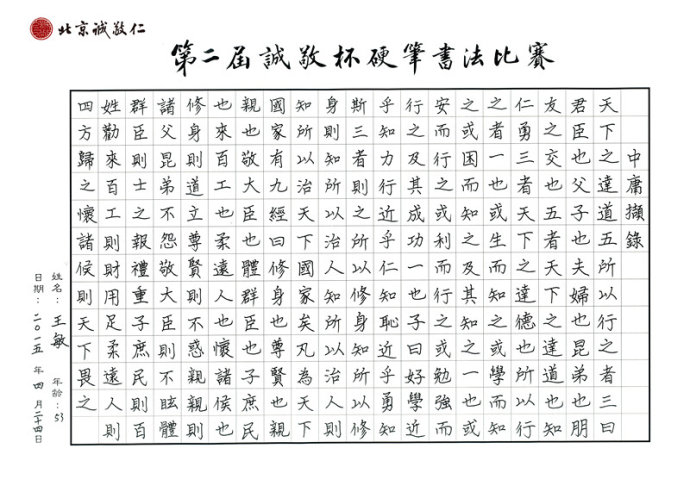 北京誠敬仁
第二届誠敬杯硬筆書法比賽
中庸擷錄
天下之達道五所以行之者三曰
君臣也父子也夫婦也昆弟也朋
友之交也五者天下之達道也知
仁勇三者天下之達德也所以行
之者一也或生而知之或學而知
之或困而知之及其知之一也或
安而行之或利而行之或勉強而
行之及其成功一也子曰好學近
乎知力行近乎仁知恥近乎勇知
斯三者則之所以修身知所以修
身則知所以治人知所以治人則
知所以治天下國家矣凡為天下
國家有九經曰修身也尊賢也親
親也敬大臣也體群臣也子庶民
也來百工也柔遠人也懷諸侯也
修身則道立尊賢則不惑親親則
諸父昆弟不怨敬大臣則不眩體
群臣則士之報禮重子庶民則百
姓勸來百工則財用足柔遠人則
四方歸之懷諸侯則天下畏之
姓名：王敏 年齡：53
日期：二〇一五年四月二十四日